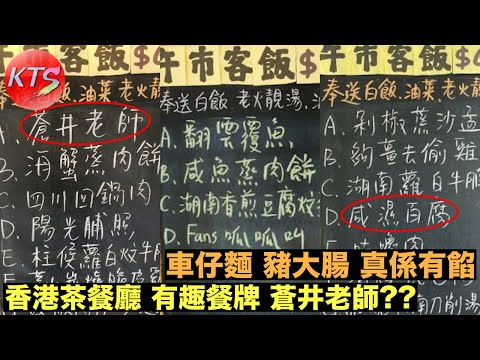 KTS
市客飯$
飯、油菜 老火
A、蒼井老師
B、海蟹蒸肉餅
C、四川回鍋肉
D、陽光脯照
E、柱侯蘿白炆牛
午市客飯$
奉送白飯 老火靚湯、
A、翻雲覆魚
B、咸魚蒸肉餅
C、湖南香煎豆腐炆
D、Fans呱呱叫
午市客飯$4
奉送白飯、油菜 老火
A、剁椒蒸沙孟
B、夠薑去偷雞
C、湖南蘿白牛
D、咸濕白腐
嚕肉
南刀削湯
車仔麵 豬大腸 真係有餡
香港茶餐廳 有趣餐牌 蒼井老師??